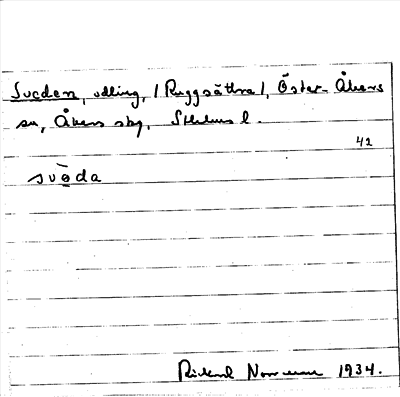 Sveden, odling, /Ruggsättra/, Öster-Åkers
sn, Åkers skg, Sthlms l.
42
svēda
Rickard Norrman 1934.